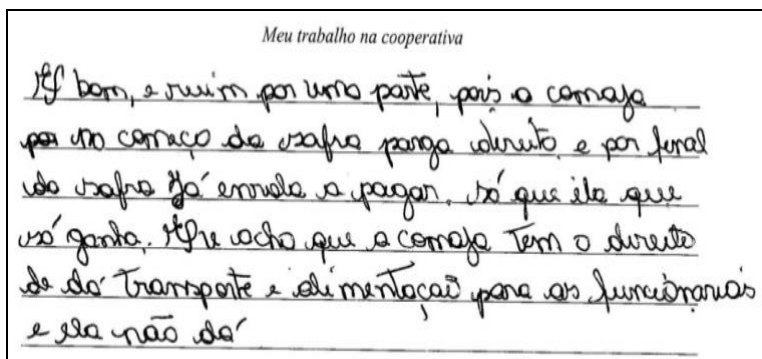 Meu trabalho na cooperativa
É bom, e ruim por uma parte, pois a comaja
por no começo da safra parga direito e por final
da safra já enrola a pagar. só que ela que
só ganha. Eu acho que a comaja tem o direito
de dá transporte e alimentaçaõ para as funcionarias
e ela não dá